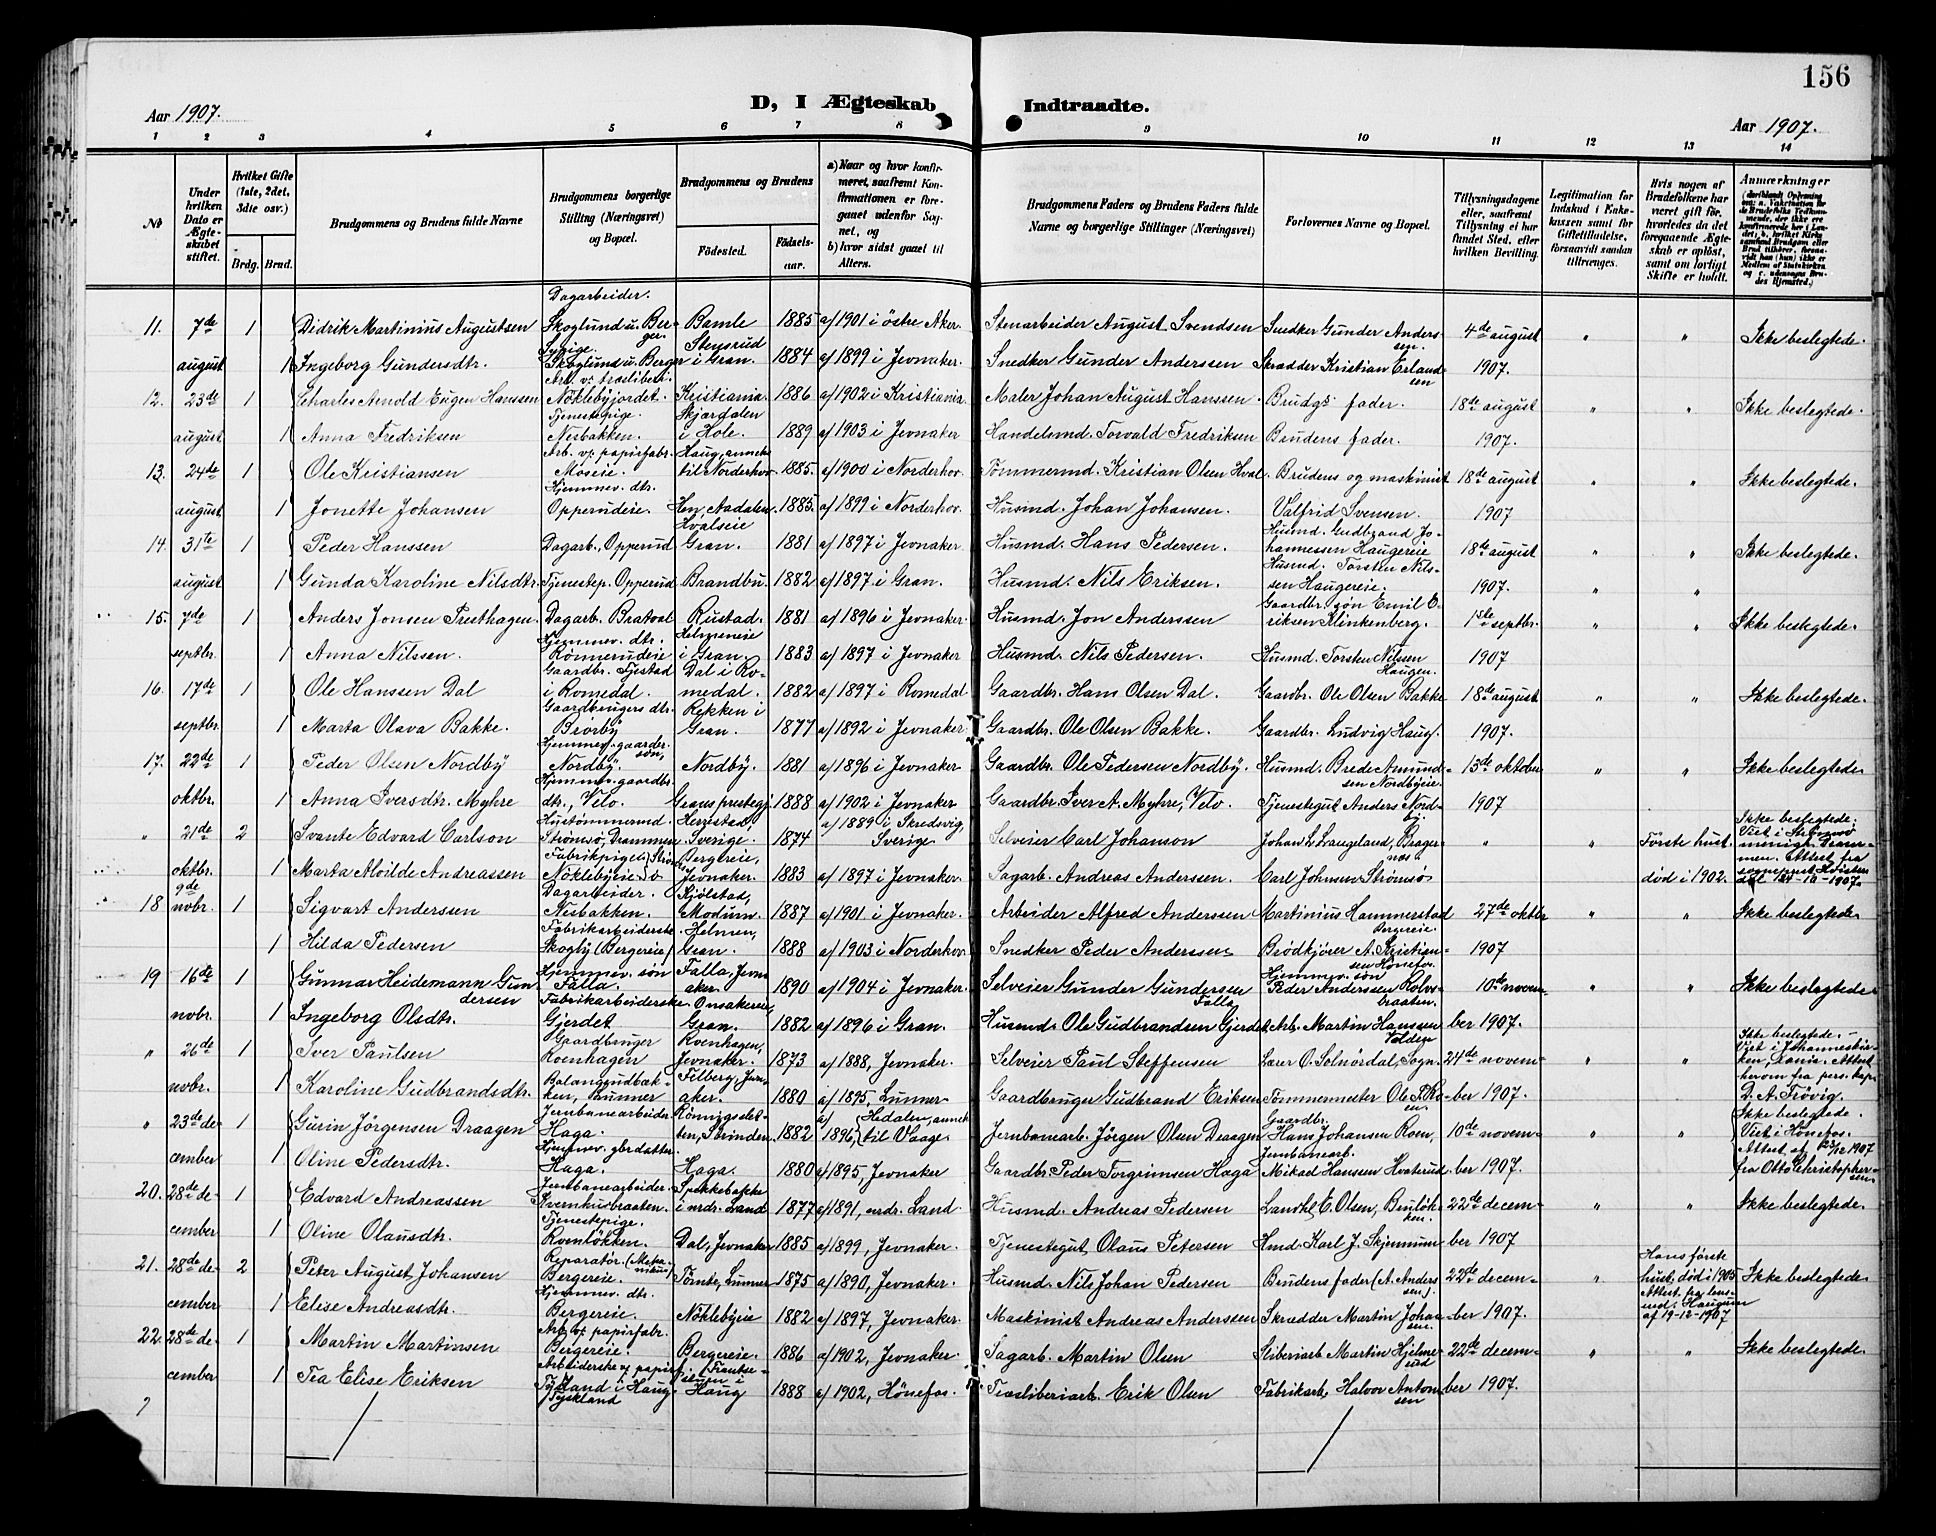 156
Aar 1907.
D, I Ægteskab Indtraadte.
Aar 1907.
1 2 3 4 5 6 7 8 9 10 11 12 13 14
No
Under hvilken Dato er Ægteskabet stiftet.
Hvilket Gifte (1ste, 2det, 3die osv.)
Brdg. Brud.
Brudgommens og Brudens fulde Navne
Brudgommens borgerlige Stilling (Næringsvei) og Bopæl.
Brudgommens og Brudens
Födested. Födselsaar.
a) Naar og hvor konfirmeret, saafremt Konfirmationen er foregaaet udenfor Sognet, og b) hvor sidst gaaet til Alters.
Brudgommens Faders og Brudens Faders fulde Navne og borgerlige Stillinger (Næringsvei)
Forlovernes Navne og Bopæl.
Tillysningsdagene eller, saafremt Tillysning ei har fundet Sted, efter hvilken Bevilling.
Legitimation for Indskud i Enkekassen samt for Giftetilladelse, forsaavidt saadan tiltrænges.
Hvis nogen af Brudefolkene har været gift för, hvorledes da det foregaaende Ægteskab er oplöst, samt om lovligt Skifte er holdt.
Anmærkninger
11. 7de 1 Didrik Martinius Augustsen Dagarbeider. Skoglund u. Berger. Bamle 1885 a/ 1901 i östre Aker. Stenarbeider August Svendsen Snedker Gunder Anderssen. 4de august " " Ikke beslegtede.
august 1 Ingeborg Gundersdtr. Skoglund u. Berger Stensrud i Gran. 1884 a/ 1899 i Jevnaker. Snedker Gunder Anderssen Skrædder Kristian Erlandsen 1907.
12. 23de 1 Charles Arnold Eugen Hanssen Arb. v. træsliberi. Nöklebyjordet. Kristiania. 1886 a/ 1902 i Kristiania. Maler Johan August Hanssen. Brudgs fader. 18de august " " Ikke beslegtede.
august 1 Anna Fredriksen Tjenestepige. Nesbakken. Skjærdalen i Hole. 1889 a/ 1903 i Jevnaker Handelsmd. Torvald Fredriksen Brudens fader. 1907.
13. 24de 1 Ole Kristiansen Arb. v. papirfabr. Moseie. Haug, anneks til Norderhov. 1885. a/ 1900 i Norderhov. Tömmermd. Kristian Olsen Hval. Brudens og maskinist 18de august " " Ikke beslegtede.
august 1 Jonette Johansen Hjemmev. dtr. Opperudeie. Hen, Aadalen. 1885. a/ 1899 i Norderhov. Husmd. Johan Johansen. Valfrid Svensen. 1907
14. 31te 1 Peder Hanssen Dagarb., Opperud Hvalseie Gran. 1881 a/ 1897 i Jevnaker. Husmd. Hans Pedersen. Husmd. Gudbrand Johannessen Haugereie 18de august " " Ikke beslegtede.
august 1 Gunda Karoline Nilsdtr. Tjenestep. Opperud Brandbu. 1882 a/ 1897 i Gran. Husmd. Nils Eriksen. Husmd. Torsten Nilssen Haugereie. 1907. " "
15. 7de 1 Anders Jonsen Presthagen. Dagarb. Bratval Rustad. 1881 a/ 1896 i Jevnaker. Husmd. Jon Anderssen Gaardbr. sön Emil Eriksen Klinkenberg. 1ste septbr. " " Ikke beslegtede.
septbr. 1 Anna Nilssen. Hjemmev. dtr. Rönnerudeie Helmeneie i Gran. 1883 a/ 1897 i Jevnaker Husmd. Nils Pedersen. Husmd. Torsten Nilssen Haugen. 1907
16. 17de 1 Ole Hanssen Dal Gaardbr. Tjestad i Romedal. Dal i Romedal. 1882 a/ 1897 i Romedal Gaardbr. Hans Olsen Dal. Gaardbr. Ole Olsen Bakke 18de august " " Ikke beslegtede.
septbr. 1 Marta Olava Bakke. Gaardbrugers dtr. Brörby Rekken i Gran. 1877 a/ 1892 i Jevnaker Gaardbr. Ole Olsen Bakke. Gaardbr. Ludvig Haug. 1907.
17. 22de 1 Peder Olsen Nordby Hjemmev. gaardbr. sön, Nordby. Nordby. 1881 a/ 1896 i Jevnaker Gaardbr. Ole Pedersen Nordby. Husmd. Brede Amundsen Nordbyeie. 13de oktober " " Ikke beslegtede
oktbr. 1 Anna Iversdtr. Myhre Hjemmev. gaardbr. dtr., Velo. Grans prestegj. 1888 a/ 1902 i Jevnaker Gaardbr. Iver A. Myhre, Velo. Tjenestegut Anders Nordby. 1907
" 21de 2 Svante Edvard Carlson Hustömmermd. Strömsö, Drammen Herrestad, Sverige. 1874 a/ 1889 i Skredsvig, Sverige. Selveier Carl Johanson Johan L. Langeland, Bragernæs " " Förste hust. Ikke beslegtede. Viet i Strömsö menigh. Drammen. Attest fra
oktbr. 1 Marta Alvilde Andreassen Nöklebyeie. Bergereie, Jevnaker. 1883 a/ 1897 i Jevnaker. Sagarb. Andreas Anderssen. Carl Johnsen Strömsö död i 1902. 24-10-1907.
18 9de novbr. 1 Sigvart Anderssen Dagarbeider. Nesbakken. Kjölstad, Modum. 1887 a/ 1901 i Jevnaker. Arbeider Alfred Anderssen Martinius Hammerstad Bergereie. 27de oktbr " " Ikke beslegtede
1 Hilda Pedersen Fabrikarbeiderske. Skogly (Bergereie) Helmen, Gran. 1888 a/ 1903 i Norderhov. Snedker Peder Anderssen Brödkjörer A. Kristiansen Hönefos. 1907
19 16de 1 Gunnar Heidemann Gundersen Hjemmev. sön Falla. Falla, Jevnaker. 1890 a/ 1904 i Jevnaker. Selveier Gunder Gundersen Falla Hjemmev. sön Peder Anderssen Rolvsbraaten. 10de novem- " " Ikke beslegtede
novbr. 1 Ingeborg Olsdtr. Fabrikarbeiderske. Gjerdet Onsakereie, Gran. 1882 a/ 1896 i Gran. Husmd. Ole Gudbrandsen Gjerdet. Arb. Martin Hanssen Velden ber 1907.
" 26de 1 Iver Paulsen Gaardbruger Roenhagen Roenhagen, Jevnaker. 1873 a/ 1888, Jevnaker. Selveier Paul Steffensen Lærer O. Solnördal, Sogn. 24de novem- " " Ikke beslegtede. Viet i Johanneskirken, Krania. Attest herom fra pers. kap.
novbr. 1 Karoline Gudbrandsdtr. Balangrudbækken, Lunner Filberg, Jevnaker. 1880 a/ 1895, Lunner Gaardbruger Gudbrand Eriksen Tömmermester Ole P. Roen. ber 1907. D. A. Frövig.
" 23de de- 1 Gurin Jörgensen Draagen Jernbanearbeider Haga. Römingsletten, Strinden. 1882 a/ 1896, Hedalen, annek til Vaage. Jernbanearb. Jörgen Olsen Draagen Gaardbr. Hans Johansen Roen, 10de novem- " " Ikke beslegtede. Viet i Hönefos. Attest af 23/12 1907
cember 1 Oline Pedersdtr. Hjemmev. gbr datter. Haga. Haga. 1880 a/ 1895, Jevnaker Gaardbr. Peder Torgrimsen Haga Jernbanearb. Mikael Hansen Hvaterud. ber 1907. fra Otto Christophersen.
20. 28de de- 1 Edvard Andreassen Jernbanearbeider. Kvernhusbraaten. Spekkebakke i nrdr. Land 1877 a/ 1891, nrdr. Land. Husmd. Andreas Pedersen Landhl. E. Olsen, Benlökken. 22de decem- " " Ikke beslegtede.
cember 1 Oline Olausdtr. Tjenestepige. Roenlökken. Dal, Jevnaker 1885 a/ 1899, Jevnaker. Tjenestegut, Olaus Petersen Hmd. Karl J. Skjennum ber 1907
21. 28de de- 2 Peter August Johansen Reparatör. (Mekanikus) Bergereie. Tömte, Lunner 1875 a/ 1890, Jevnaker. Husmd. Nils Johan Pedersen Brudens fader (A. Anderssen). 22de decem- " Hans förste hust. död i 1905 Attest fra lensmd. Haugum af 19-12-1907 Ikke beslegtede
cember 1 Elise Andreasdtr. Hjemmev. dtr. Bergereie. Nöklebyeie 1882 a/ 1897, Jevnaker. Maskinist Andreas Anderssen Skrædder Martin Johansen. ber 1907.
22. 28de de- 1 Martin Martinsen Arb. v. papirfabr. Bergereie. Bergereie. 1886 a/ 1902, Jevnaker. Sagarb. Martin Olsen Sliberiarb Martin Hjelmerud 22de decem- " " Ikke beslegtede
cember 1 Tea Elise Eriksen Arbeiderske v. papirf. Tyskland Haug 1888 a/ 1902, Hönefos. Træsliberiarb. Erik Olsen Fabrikarb. Halvor Antonsen ber 1907.